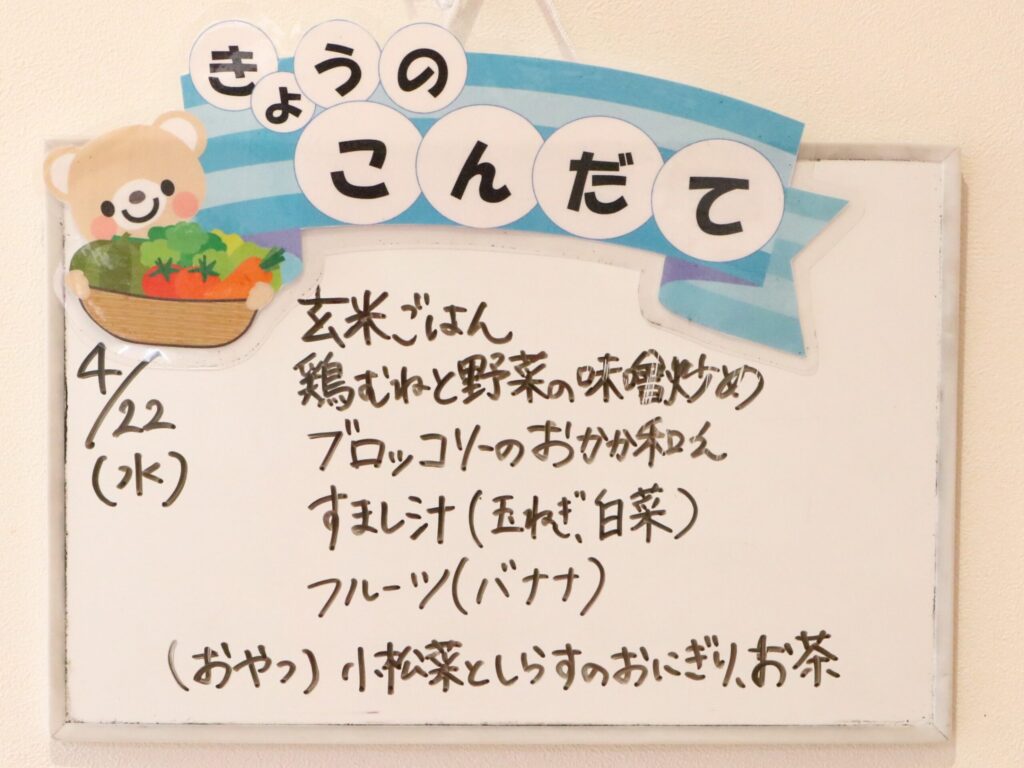 きょうの
こんだて
4/22
(水)
玄米ごはん
鶏むねと野菜の味噌炒め
ブロッコリーのおかか和え
すまし汁(玉ねぎ、白菜)
フルーツ(バナナ)
(おやつ)小松菜としらすのおにぎり、お茶